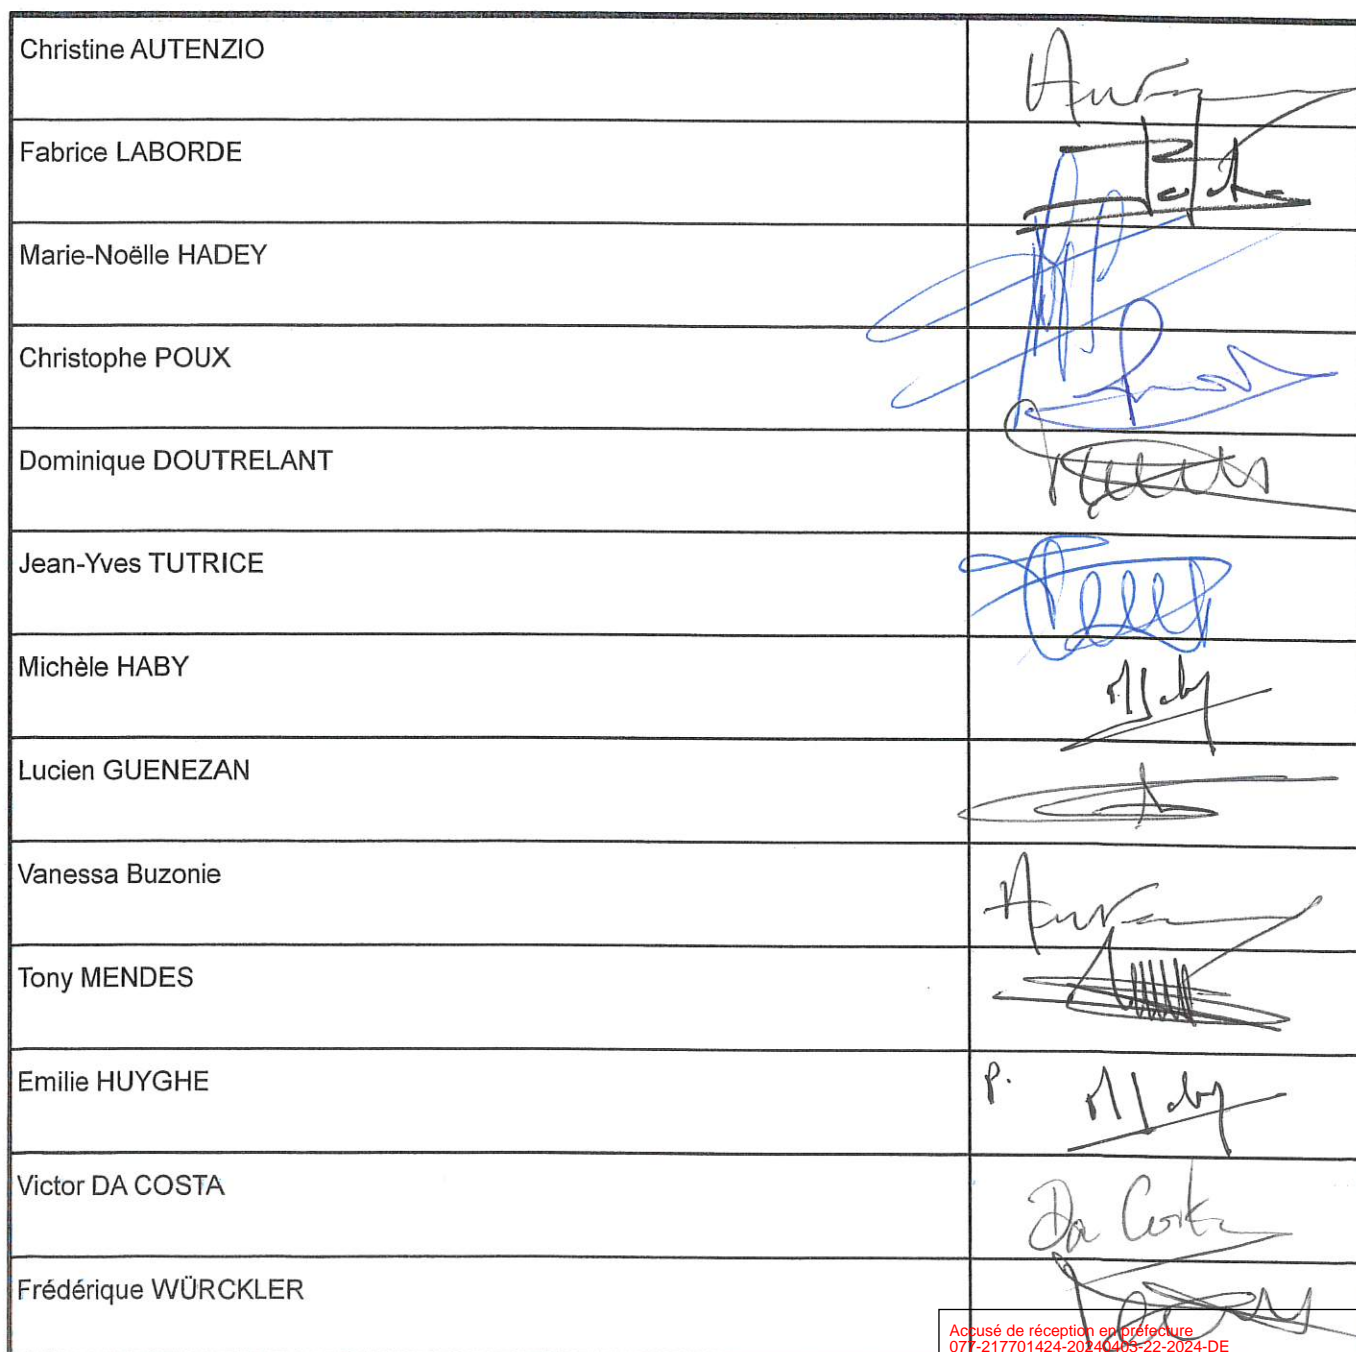 Christine AUTENZIO
Fabrice LABORDE
Marie-Noëlle HADEY
Christophe POUX
Dominique DOUTRELANT
Jean-Yves TUTRICE
Michèle HABY
Lucien GUENEZAN
Vanessa Buzonie
Tony MENDES
Emilie HUYGHE
P.
Victor DA COSTA
Da Costa
Frédérique WÜRCKLER
Accusé de réception en préfecture
077-217701424-20240403-22-2024-DE